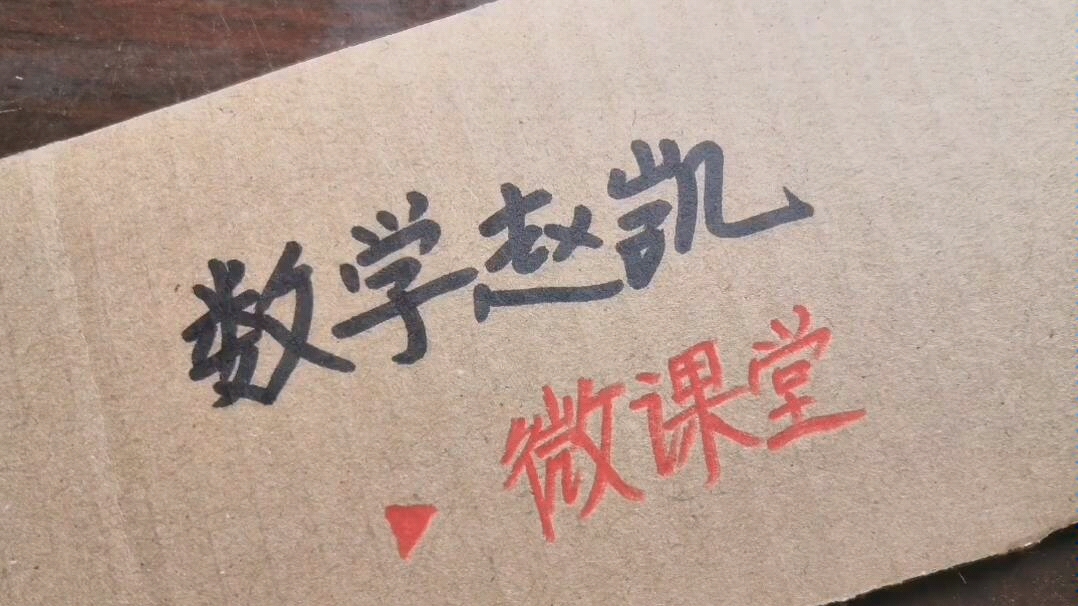 数学赵凯
微课堂